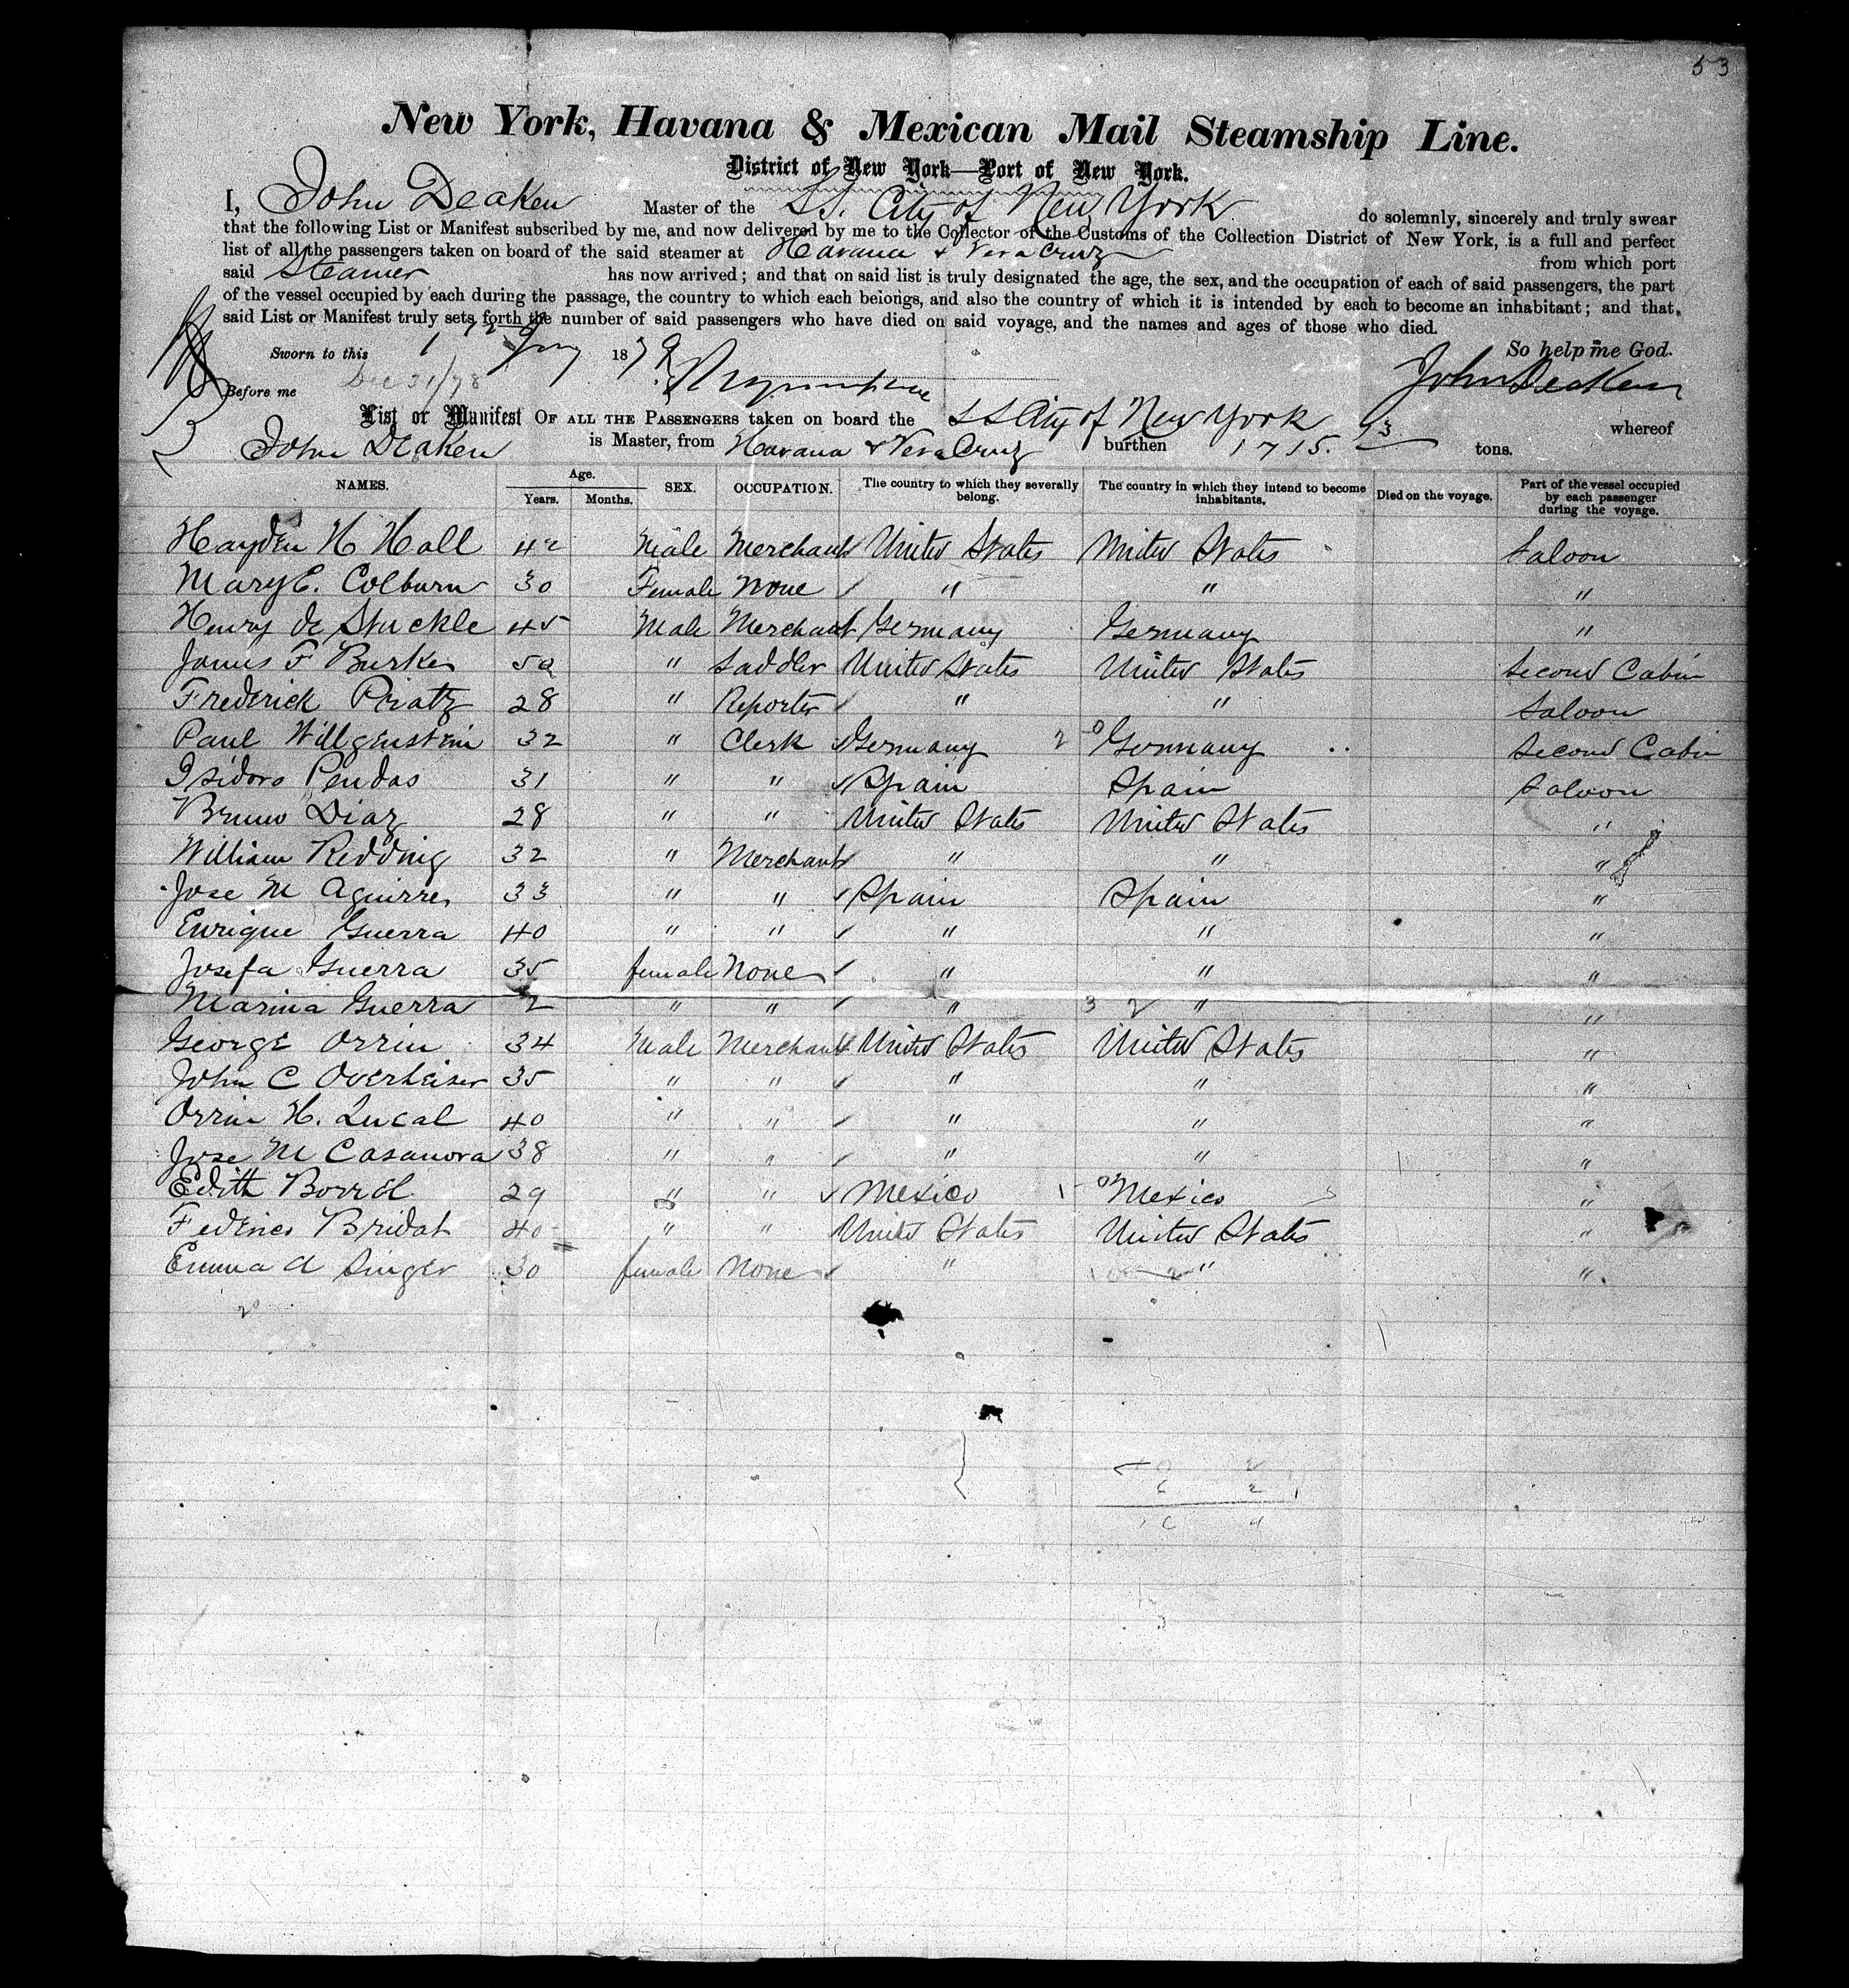 53
New York, Havana & Mexican Mail Steamship Line.
District of New York—Port of New York.
I, John Deaken Master of the S.S. City of New York do solemnly, sincerely and truly swear
that the following List or Manifest subscribed by me, and now delivered by me to the Collector of the Customs of the Collection District of New York, is a full and perfect
list of all the passengers taken on board of the said steamer at Havana & Vera Cruz from which port
said Steamer has now arrived; and that on said list is truly designated the age, the sex, and the occupation of each of said passengers, the part
of the vessel occupied by each during the passage, the country to which each belongs, and also the country of which it is intended by each to become an inhabitant; and that,
said List or Manifest truly sets forth the number of said passengers who have died on said voyage, and the names and ages of those who died.
Sworn to this 1 1879 So help me God.
Dec 31/78 John Deaken
Before me
List or Manifest OF ALL THE PASSENGERS taken on board the SS City of New York whereof
John Deaken is Master, from Havana & Vera Cruz burthen 1715. 93 tons.
NAMES. Age. Years. Months. SEX. OCCUPATION. The country to which they severally belong. The country in which they intend to become inhabitants. Died on the voyage. Part of the vessel occupied by each passenger during the voyage.
Hayden H Hall 42 Male Merchant United States United States Saloon
Mary E. Colburn 30 Female None " " "
Henry de Stuckle 45 Male Merchant Germany Germany "
James F Burke 50 " Saddler United States United States Second Cabin
Frederick Pratz 28 " Reporter " " Saloon
Paul Willgenstein 32 " Clerk Germany 2 0 Germany Second Cabin
Isidoro Pendas 31 " " Spain Spain Saloon
Bruno Diaz 28 " " United States United States "
William Redding 32 " Merchant " " "
Jose M Aguirre 33 " " Spain Spain "
Enrique Guerra 40 " " " " "
Josefa Guerra 35 female None " " "
Marina Guerra 2 " " " 3 2 " "
George Orrin 34 Male Merchant United States United States "
John C Overheiser 35 " " " " "
Orrin H. Lucal 40 " " " " "
Jose M Casanova 38 " " " " "
Edith Borrel 29 " " Mexico 1 0 Mexico "
Federico Bridat 40 " " United States United States "
Emma A Singer 30 female None " " "